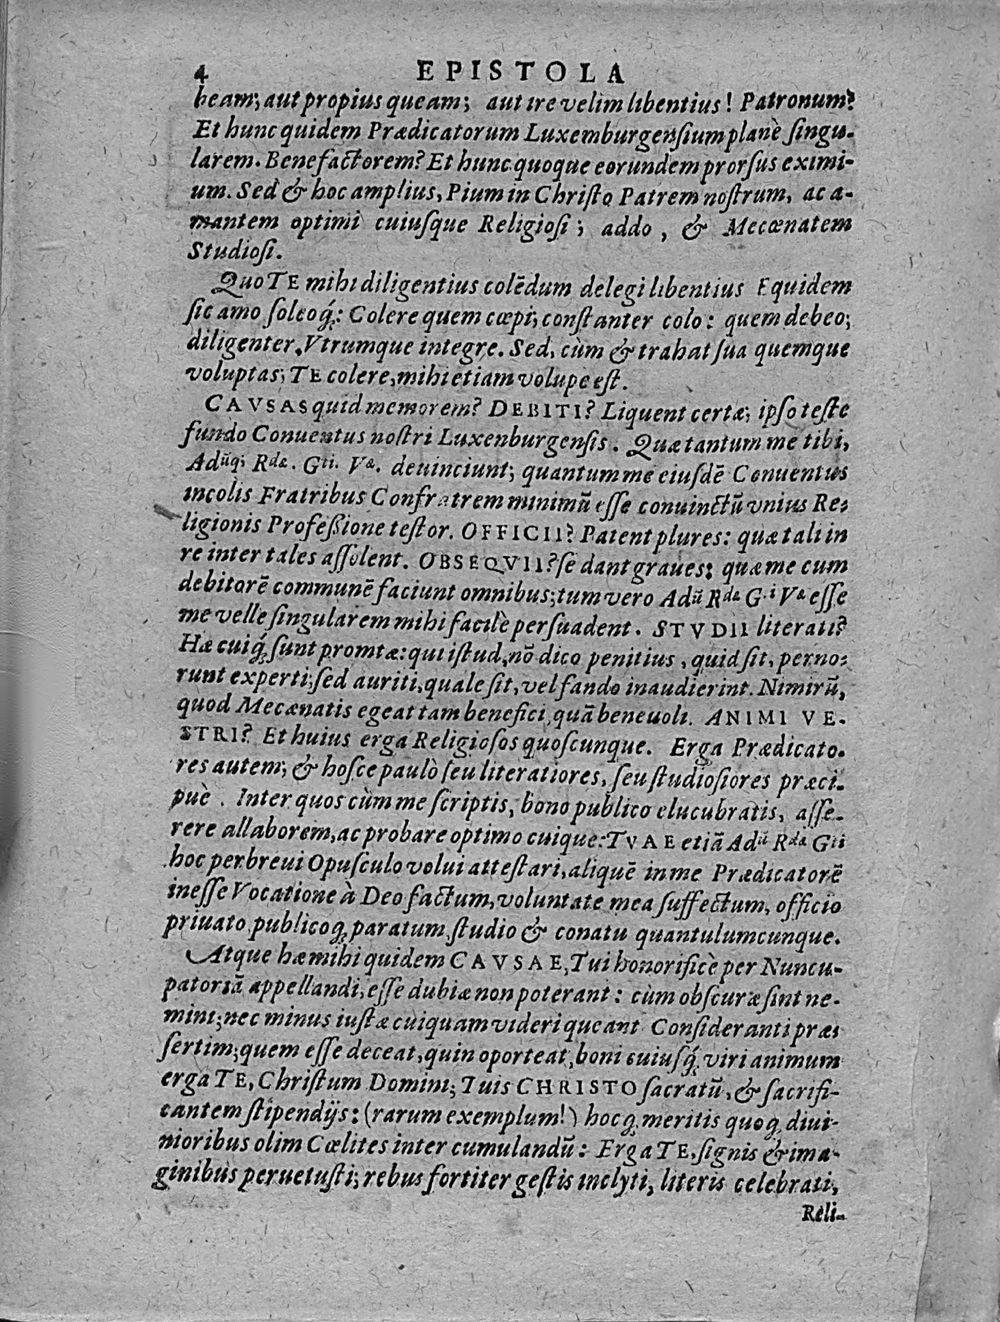 4 EPISTOLA
beam; aut propius queam; aut ire velim libentius! Patronum?
Et hunc quidem Prædicatorum Luxemburgensium planè ſingu-
larem. Benefactorem? Et hunc quoque eorundem prorſus eximi-
um. Sed & hoc amplius, Pium in Chriſto Patrem noſtrum, ac a-
mantem optimi cuiuſque Religioſi; addo, & Mecœnatem
Studioſi.
Quo TE mihi diligentius colēdum delegi libentius Equidem
ſic amo ſoleoq́;: Colere quem cœpi; conſtanter colo: quem debeo;
diligenter. Vtrumque integre. Sed, cùm & trahat ſua quemque
voluptas; TE colere, mihi etiam volupe eſt.
CAVSAS quid memorem? DEBITI? Liquent certæ; ipſo teſte
fundo Conuentus noſtri Luxenburgenſis. Quæ tantum me tibi,
Adūq; Rdæ. Gti. Væ. deuinciunt; quantum me eiuſdē Conuentus
incolis Fratribus Confratrem minimū eſſe conuinctū vnius Re-
ligionis Profeßione teſtor. OFFICII? Patent plures: quæ tali in
re inter tales aſſolent. OBSEQVII? ſe dant graues: quæ me cum
debitorē communē faciunt omnibus; tum vero Adū Rdæ Gti Væ eſſe
me velle ſingularem mihi facilè perſuadent. STVDII literati?
Hæ cuiq́; ſunt promtæ: qui iſtud, nō dico penitius, quid ſit, perno-
runt experti; ſed auriti, quale ſit, vel fando inaudierint. Nimirū,
quod Mecænatis egeat tam benefici, quā beneuoli. ANIMI VE-
STRI? Et huius erga Religioſos quoſcunque. Erga Prædicato-
res autem; & hoſce paulò ſeu literatiores, ſeu ſtudioſiores præci-
puè. Inter quos cùm me ſcriptis, bono publico elucubratis, aſſe-
rere allaborem, ac probare optimo cuique: TVAE etiā Adū Rdæ Gti
hoc perbreui Opuſculo volui atteſtari, aliquē in me Prædicatorē
ineſſe Vocatione à Deo factum, voluntate mea ſuffectum, officio
priuato publicoq; paratum, ſtudio & conatu quantulumcunque.
Atque hæ mihi quidem CAVSAE, Tui honorificè per Nuncu-
patoriā appellandi, eſſe dubiæ non poterant: cùm obſcuræ ſint ne-
mini; nec minus iuſtæ cuiquam videri queant Conſideranti præ-
ſertim; quem eſſe deceat, quin oporteat, boni cuiuſq́; viri animum
erga TE, Chriſtum Domini; Tuis CHRISTO ſacratū, & ſacrifi-
cantem ſtipendijs: (rarum exemplum!) hocq; meritis quoq; diui-
nioribus olim Cœlites inter cumulandū: Erga TE, ſignis & ima-
ginibus peruetuſti; rebus fortiter geſtis inclyti, literis celebrati,
Reli-